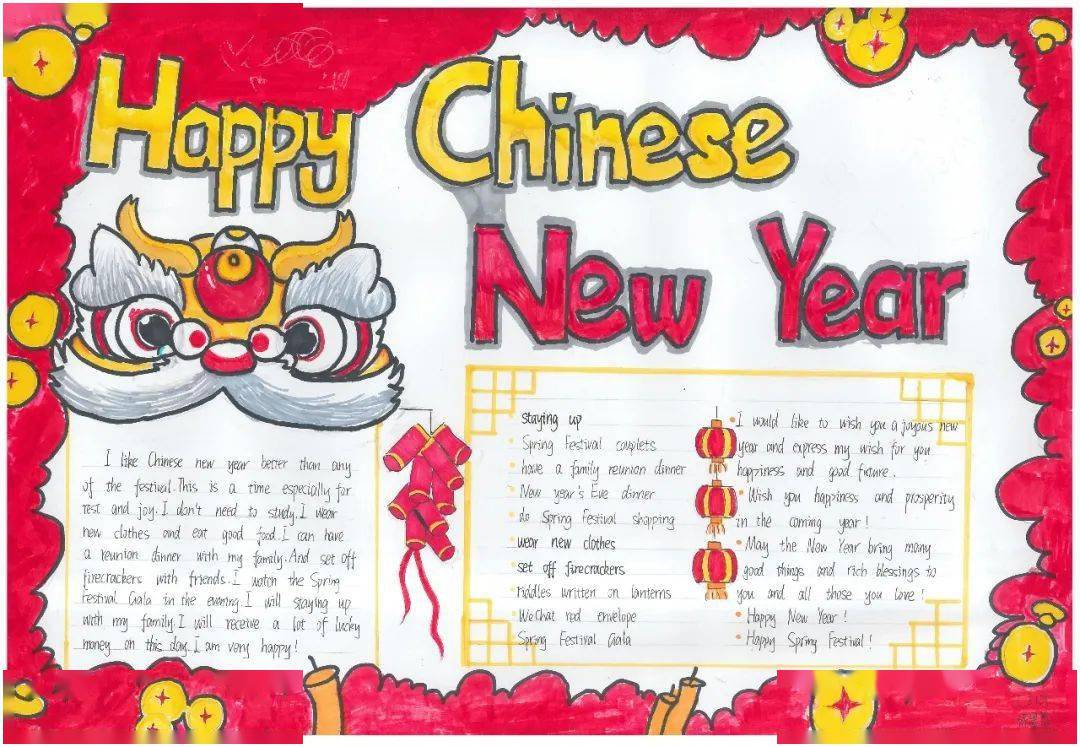 Happy Chinese
New Year
I like Chinese new year better than any
of the festival. This is a time especially for
rest and joy. I don't need to study. I wear
new clothes and eat good food. I can have
a reunion dinner with my family. And set off
firecrackers with friends. I watch the Spring
Festival Gala in the evening. I will staying up
with my family. I will receive a lot of lucky
money on this day. I am very happy!
staying up
Spring Festival couplets
have a family reunion dinner
New year's Eve dinner
do Spring Festival shopping
wear new clothes
set off firecrackers
riddles written on lanterns
WeChat red envelope
Spring Festival Gala
I would like to wish you a joyous new
year and express my wish for you
happiness and good future.
Wish you happiness and prosperity
in the coming year!
May the New Year bring many
good things and rich blessings to
you and all those you love!
Happy New Year!
Happy Spring Festival!